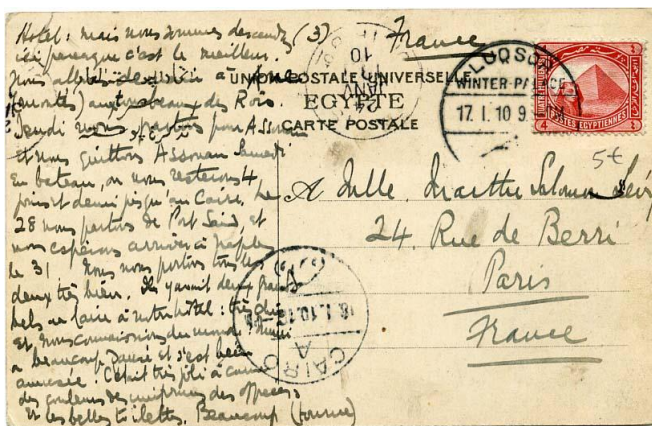 Hotel: mais nous sommes descendus
ici parceque c'est le meilleur.
Nous allons d'ici à
aux tombeaux des Rois.
Jeudi nous partons pour Assouan
et nous quittons Assouan Samedi
En bateau, ou nous resterons 4
jours et demi jusqu'au Caire. Le
28 nous partons de Port Said, et
nous espérons arriver à Naples
le 31 Nous nous portons tous les
deux très bien. Il y avait deux grands
bals au Caire à notre hôtel: très
Et nous connaissions du monde.
a beaucoup dansé et s'est bien
amusée. C'était très joli à cause
des couleurs des uniformes des officiers,
et les belles toilettes. Beaucoup (tournez)
(3) France
UNION POSTALE UNIVERSELLE
EGYPTE
CARTE POSTALE
10
JANV
LUQSOR
WINTER-PALACE
17. I. 10 9
POSTES EGYPTIENNES
4
5€
A Mlle. Marthe Salomon Lévy
24, Rue de Berri
Paris
France
18. I. 10
CAIRO